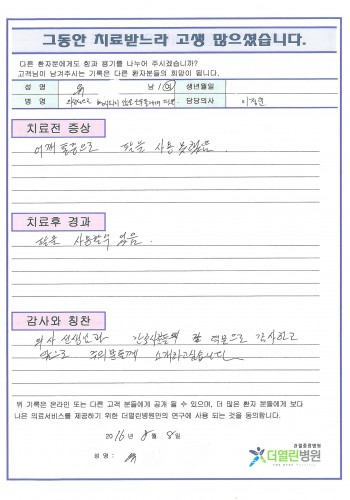 그동안 치료받느라 고생 많으셨습니다.
다른 환자분에게도 힘과 용기를 나누어 주시겠습니까?
고객님이 남겨주시는 기록은 다른 환자분들의 희망이 됩니다.
성 명 남 / 여 생년월일
병 명 담당의사 이정민
치료전 증상
어깨 통증으로 팔을 사용 못했음
치료후 경과
팔을 사용할수 있음.
감사와 칭찬
의사 선생님과 간호사분들의 덕분으로 감사하고
앞으로 주위분들께 소개하고싶습니다
위 기록은 온라인 또는 다른 고객 분들에게 공개 될 수 있으며, 더 많은 환자 분들에게 보다
나은 의료서비스를 제공하기 위한 더열린병원만의 연구에 사용 되는 것을 동의합니다.
2016 년 8 월 8 일
성 명 :
관절중점병원
더열린병원